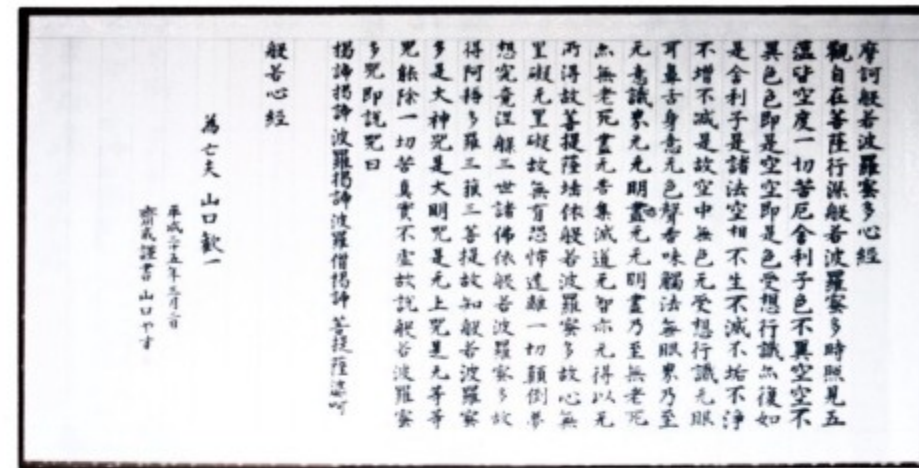 摩訶般若波羅蜜多心経
觀自在菩薩行深般若波羅蜜多時照見五
蘊皆空度一切苦厄舍利子色不異空空不
異色色即是空空即是色受想行識亦復如
是舍利子是諸法空相不生不滅不垢不浄
不增不減是故空中無色无受想行識无眼
耳鼻舌身意无色聲香味觸法無眼界乃至
无意識界无无明盡无无明盡乃至無老死
亦無老死盡无苦集滅道无智亦无得以无
所得故菩提薩埵依般若波羅蜜多故心無
罣礙无罣礙故無有恐怖遠離一切顛倒夢
想究竟涅槃三世諸佛依般若波羅蜜多故
得阿耨多羅三藐三菩提故知般若波羅蜜
多是大神咒是大明咒是无上咒是无等等
咒能除一切苦真實不虛故說般若波羅蜜
多咒即説咒曰
揭諦揭諦 波羅揭諦 波羅僧揭諦 菩提薩婆呵
般若心経
為亡夫 山口歓一
平成二十五年三月 日
齊戒謹書 山口やす